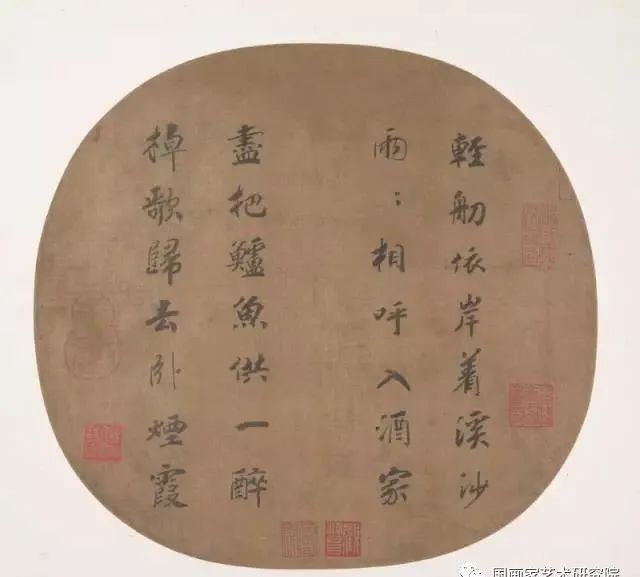 輕舠依岸着溪沙
兩：相呼入酒家
盡把鱸魚供一醉
棹歌歸去卧煙霞
国画家艺术研究院